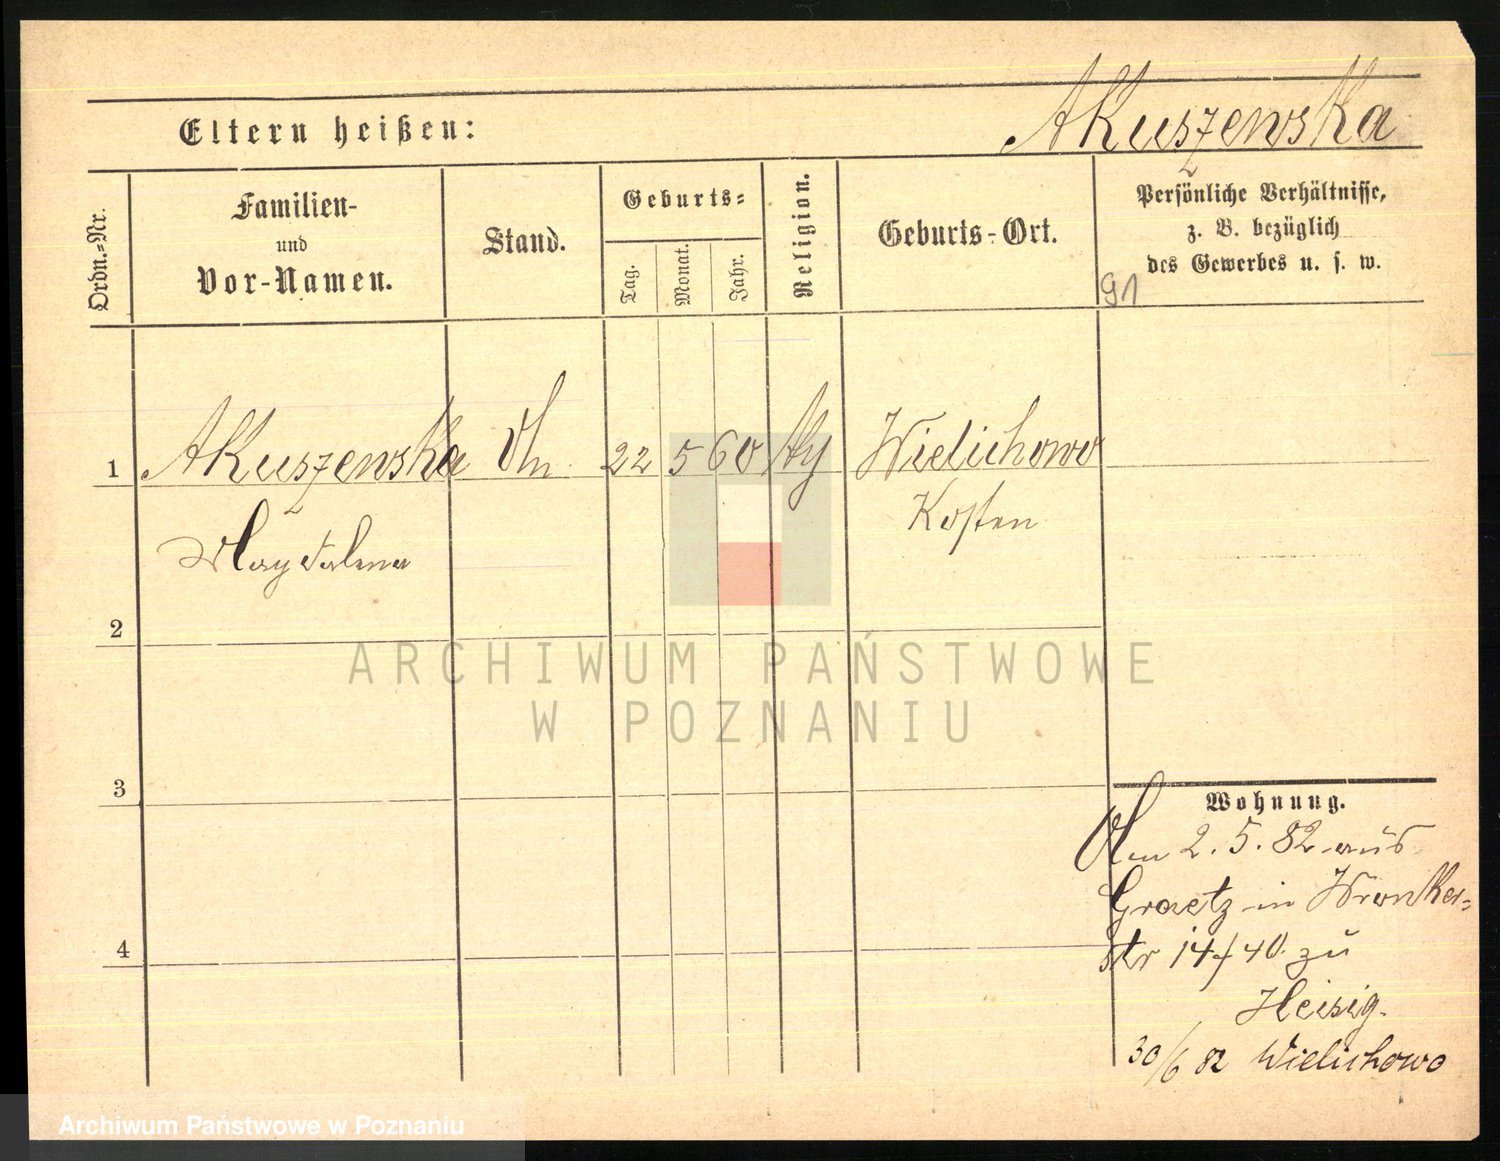 Eltern heißen:
Akuszewska
Ordn.-Nr.
Familien-
und
Vor-Namen.
Stand.
Geburts-
Tag.
Monat.
Jahr.
Religion.
Geburts-Ort.
Persönliche Verhältnisse,
z. B. bezüglich
des Gewerbes u. s. w.
91
1
Akuszewska
22 5 60
Wielichowo
Magdalena
Kosten
2
3
4
ARCHIWUM PAŃSTWOWE
W POZNANIU
Wohnung.
2. 5. 82 aus
Graetz in Wronker-
str 14/40. zu
Heisig.
30/6 82 Wielichowo
Archiwum Państwowe w Poznaniu